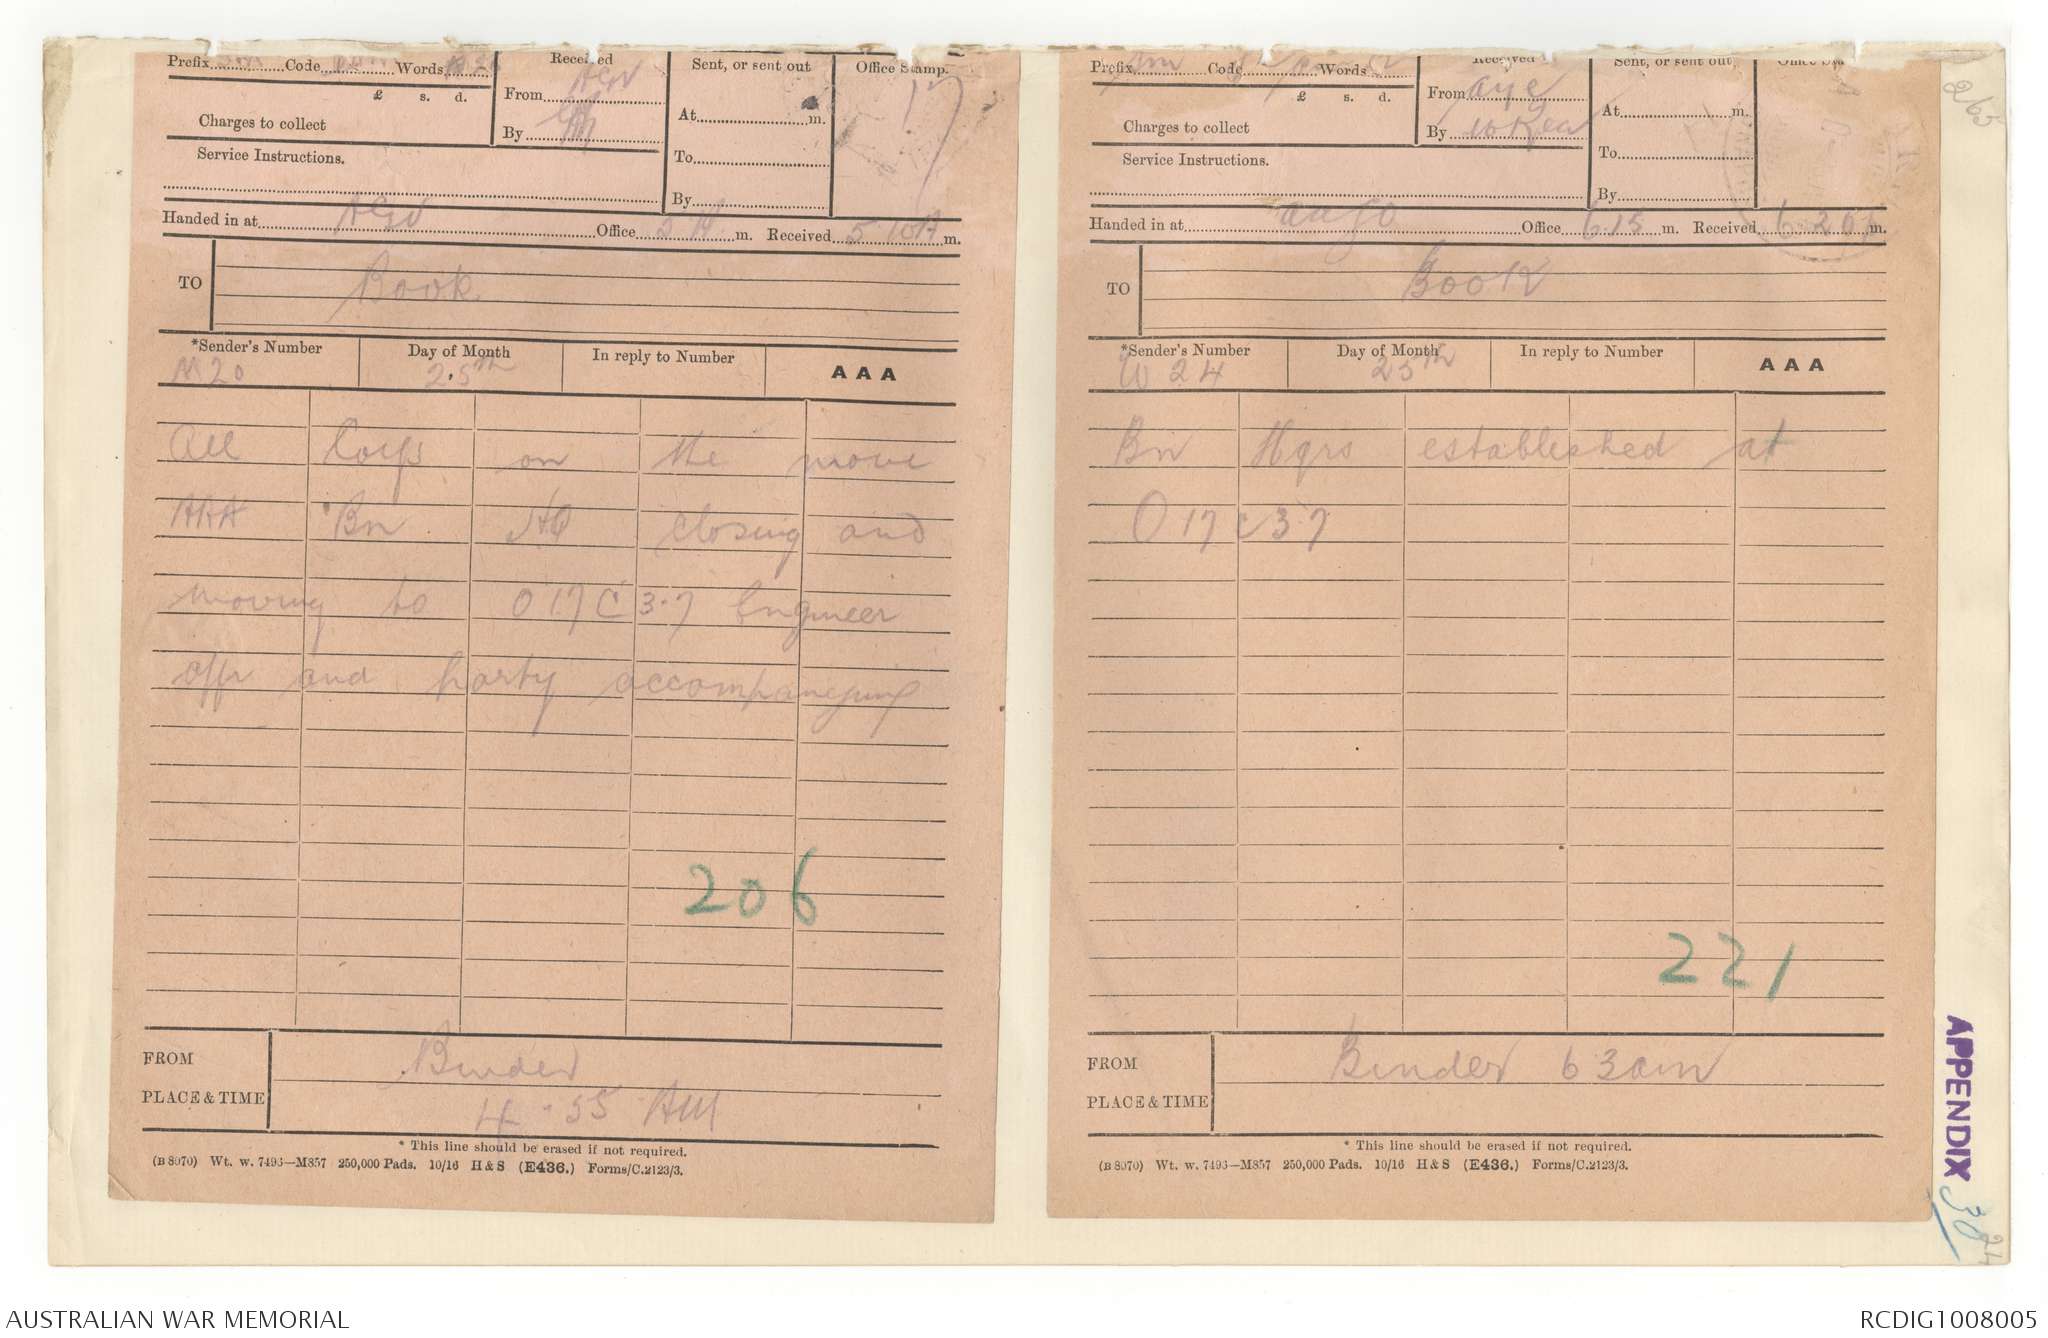 Prefix Code Words
Received
From
By
Sent, or sent out
At m.
To
By
Office Stamp.
£ s. d.
Charges to collect
Service Instructions.
Handed in at Office m. Received 5 10 A m.
TO Book
*Sender's Number
M20
Day of Month
25th
In reply to Number
AAA
All Coys on the move
AAA Bn HQ closing and
moving to O 17 C 3.7 Engineer
offr and party accompanying
206
FROM Binder
PLACE & TIME 4.55 AM
* This line should be erased if not required.
(B 8970) Wt. w. 7493—M857 250,000 Pads. 10/16 H & S (E436.) Forms/C.2123/3.
265
Prefix Code Words
Received
From
By
Sent, or sent out
At m.
To
By
£ s. d.
Charges to collect
Service Instructions.
Handed in at Office 6.15 m. Received 6 20 m.
TO Book
*Sender's Number
W 24
Day of Month
25th
In reply to Number
AAA
Bn Hqrs established at
O 17 c 3.7
221
FROM Binder 6 3 am
PLACE & TIME
* This line should be erased if not required.
(B 8970) Wt. w. 7493—M857 250,000 Pads. 10/16 H & S (E436.) Forms/C.2123/3.
APPENDIX 30
AUSTRALIAN WAR MEMORIAL
RCDIG1008005